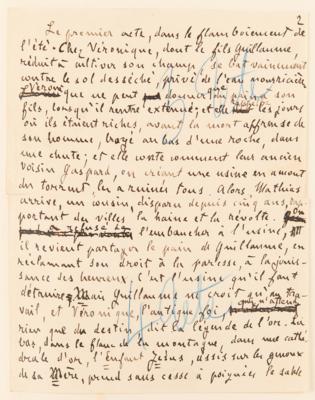 2
Le premier acte, dans le flamboiement de
l'été. Chez Véronique, dont le fils Guillaume,
réduit à cultiver son champ, se bat vainement
contre le sol desséché, privé de l'eau nourricière
que ne peut donner prière son
fils, lorsqu'il rentre exténué; et elle les jours
où ils étaient riches, avant la mort affreuse de
son homme, broyé au bas d'une roche, dans
une chute; et elle conte comment leur ancien
voisin Gaspard, en créant une usine en amont
du torrent, les a ruinés tous. Alors, Mathias
arrive, un cousin, disparu depuis cinq ans,
portant des villes la haine et la révolte.
l'embaucher à l'usine,
il revient partager le pain de Guillaume, en
réclamant son droit à la paresse, à la jouis-
sance des heureux. C'est l'usine qu'il faut
détruire. Mais Guillaume ne croit qu'au tra-
vail, et Véronique, l'antique
du destin, dit la légende de l'or. Là-
bas, dans le flanc de la montagne, dans une cathé-
drale d'or, l'Enfant Jésus, assis sur les genoux
de sa Mère, prend sans cesse à poignées le sable